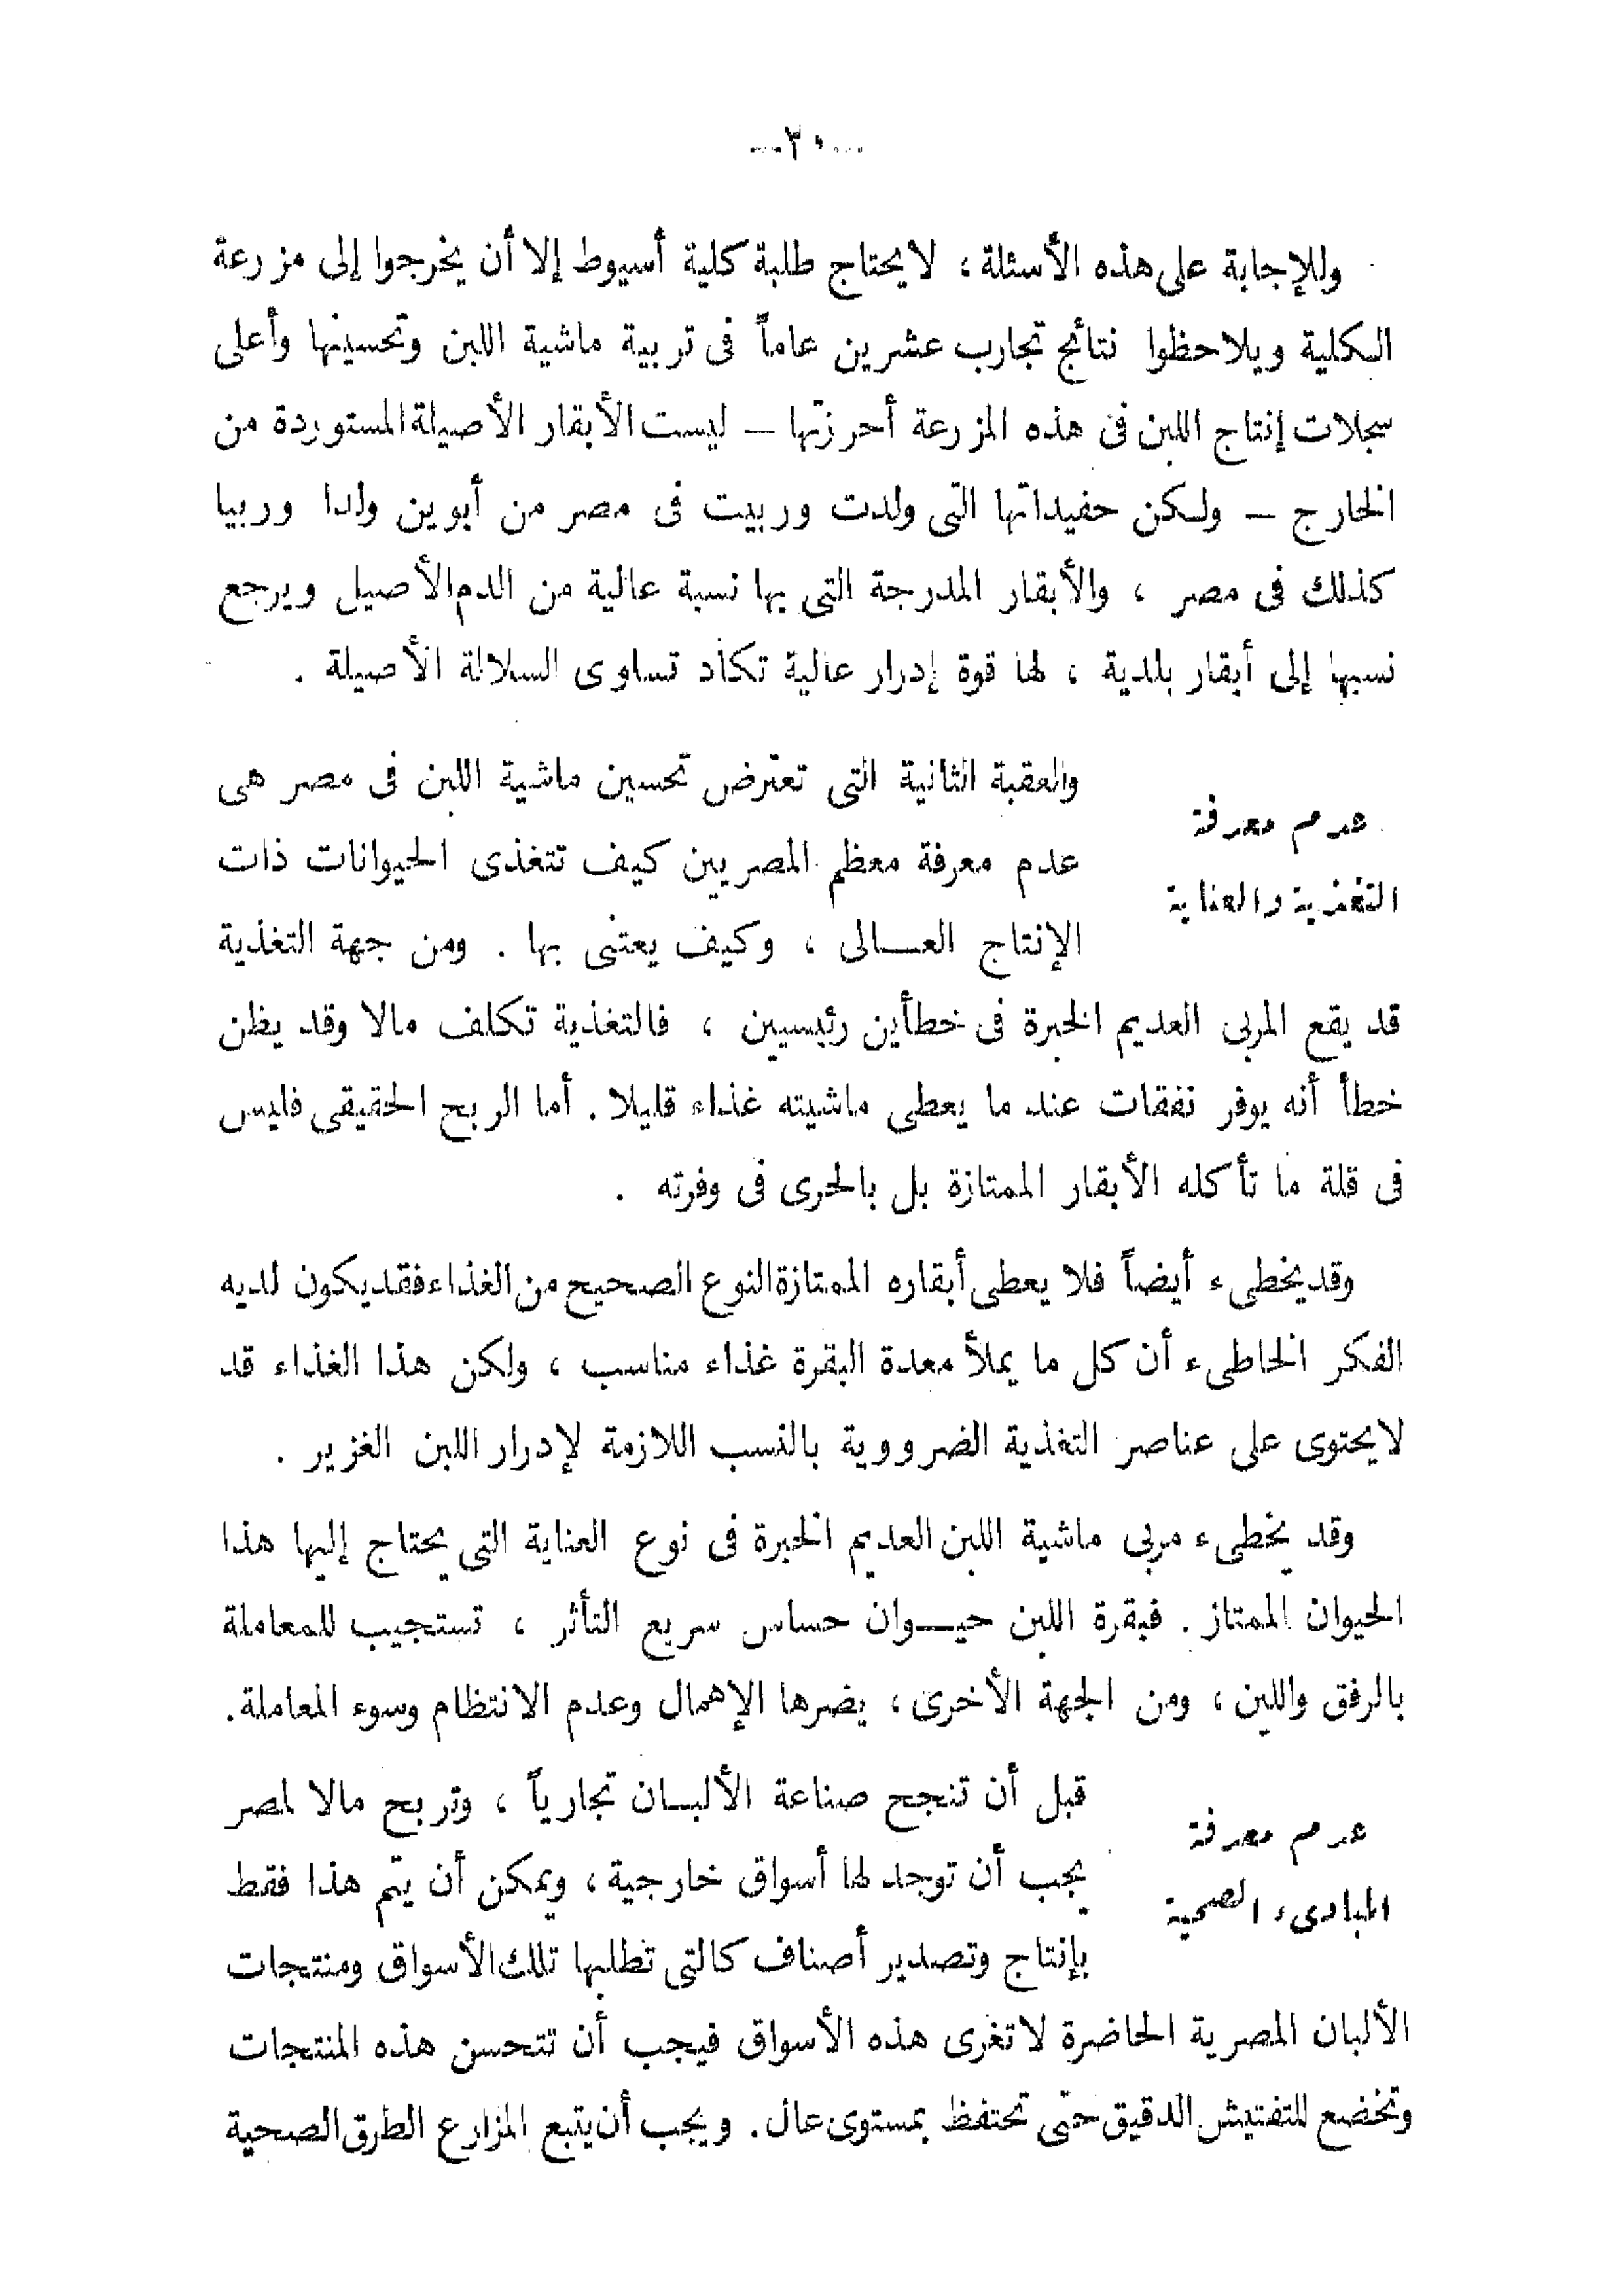 —٣٠—
وللإجابة على هذه الأسئلة ، لا يحتاج طلبة كلية أسيوط إلا أن يخرجوا إلى مزرعة
الكلية ويلاحظوا نتائج تجارب عشرين عاماً فى تربية ماشية اللبن وتحسينها وأعلى
سجلات إنتاج اللبن فى هذه المزرعة أحرزتها – ليست الأبقار الأصيلة المستوردة من
الخارج – ولكن حفيداتها التى ولدت وربيت فى مصر من أبوين ولدا وربيا
كذلك فى مصر ، والأبقار المدرجة التى بها نسبة عالية من الدم الأصيل ويرجع
نسبها إلى أبقار بلدية ، لها قوة إدرار عالية تكاد تساوى السلالة الأصيلة .
عدم معرفة
التغذية والعناية
والعقبة الثانية التى تعترض تحسين ماشية اللبن فى مصر هى
عدم معرفة معظم المصريين كيف تتغذى الحيوانات ذات
الإنتاج العالى ، وكيف يعتنى بها . ومن جهة التغذية
قد يقع المربى العديم الخبرة فى خطأين رئيسيين ، فالتغذية تكلف مالا وقد يظن
خطأ أنه يوفر نفقات عند ما يعطى ماشيته غذاء قليلا . أما الربح الحقيقى فليس
فى قلة ما تأكله الأبقار الممتازة بل بالحرى فى وفرته .
وقد يخطىء أيضاً فلا يعطى أبقاره الممتازة النوع الصحيح من الغذاء فقد يكون لديه
الفكر الخاطىء أن كل ما يملأ معدة البقرة غذاء مناسب ، ولكن هذا الغذاء قد
لا يحتوى على عناصر التغذية الضرووية بالنسب اللازمة لإدرار اللبن الغزير .
وقد يخطىء مربى ماشية اللبن العديم الخبرة فى نوع العناية التى يحتاج إليها هذا
الحيوان الممتاز . فبقرة اللبن حيوان حساس سريع التأثر ، تستجيب للمعاملة
بالرفق واللين ، ومن الجهة الأخرى ، يضرها الإهمال وعدم الانتظام وسوء المعاملة.
عدم معرفة
المبادىء الصحية
قبل أن تنجح صناعة الألبان تجارياً ، وتربح مالا لمصر
يجب أن توجد لها أسواق خارجية ، ويمكن أن يتم هذا فقط
بإنتاج وتصدير أصناف كالتى تطلبها تلك الأسواق ومنتجات
الألبان المصرية الحاضرة لا تغرى هذه الأسواق فيجب أن تتحسن هذه المنتجات
وتخضع للتفتيش الدقيق حتى تحتفظ بمستوى عال . ويجب أن يتبع المزارع الطرق الصحية